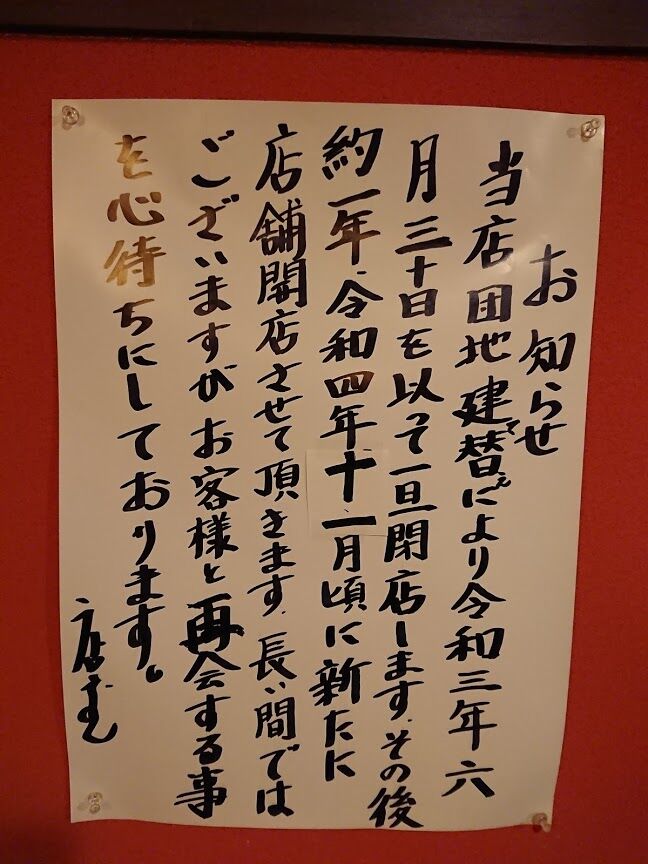 お知らせ
当店団地建替えにより令和三年六
月三十日を以って一旦閉店します、その後
約一年、令和四年十一月頃に新たに
店舗開店させて頂きます、長い間では
ございますがお客様と再会する事
を心待ちにしております。
店主